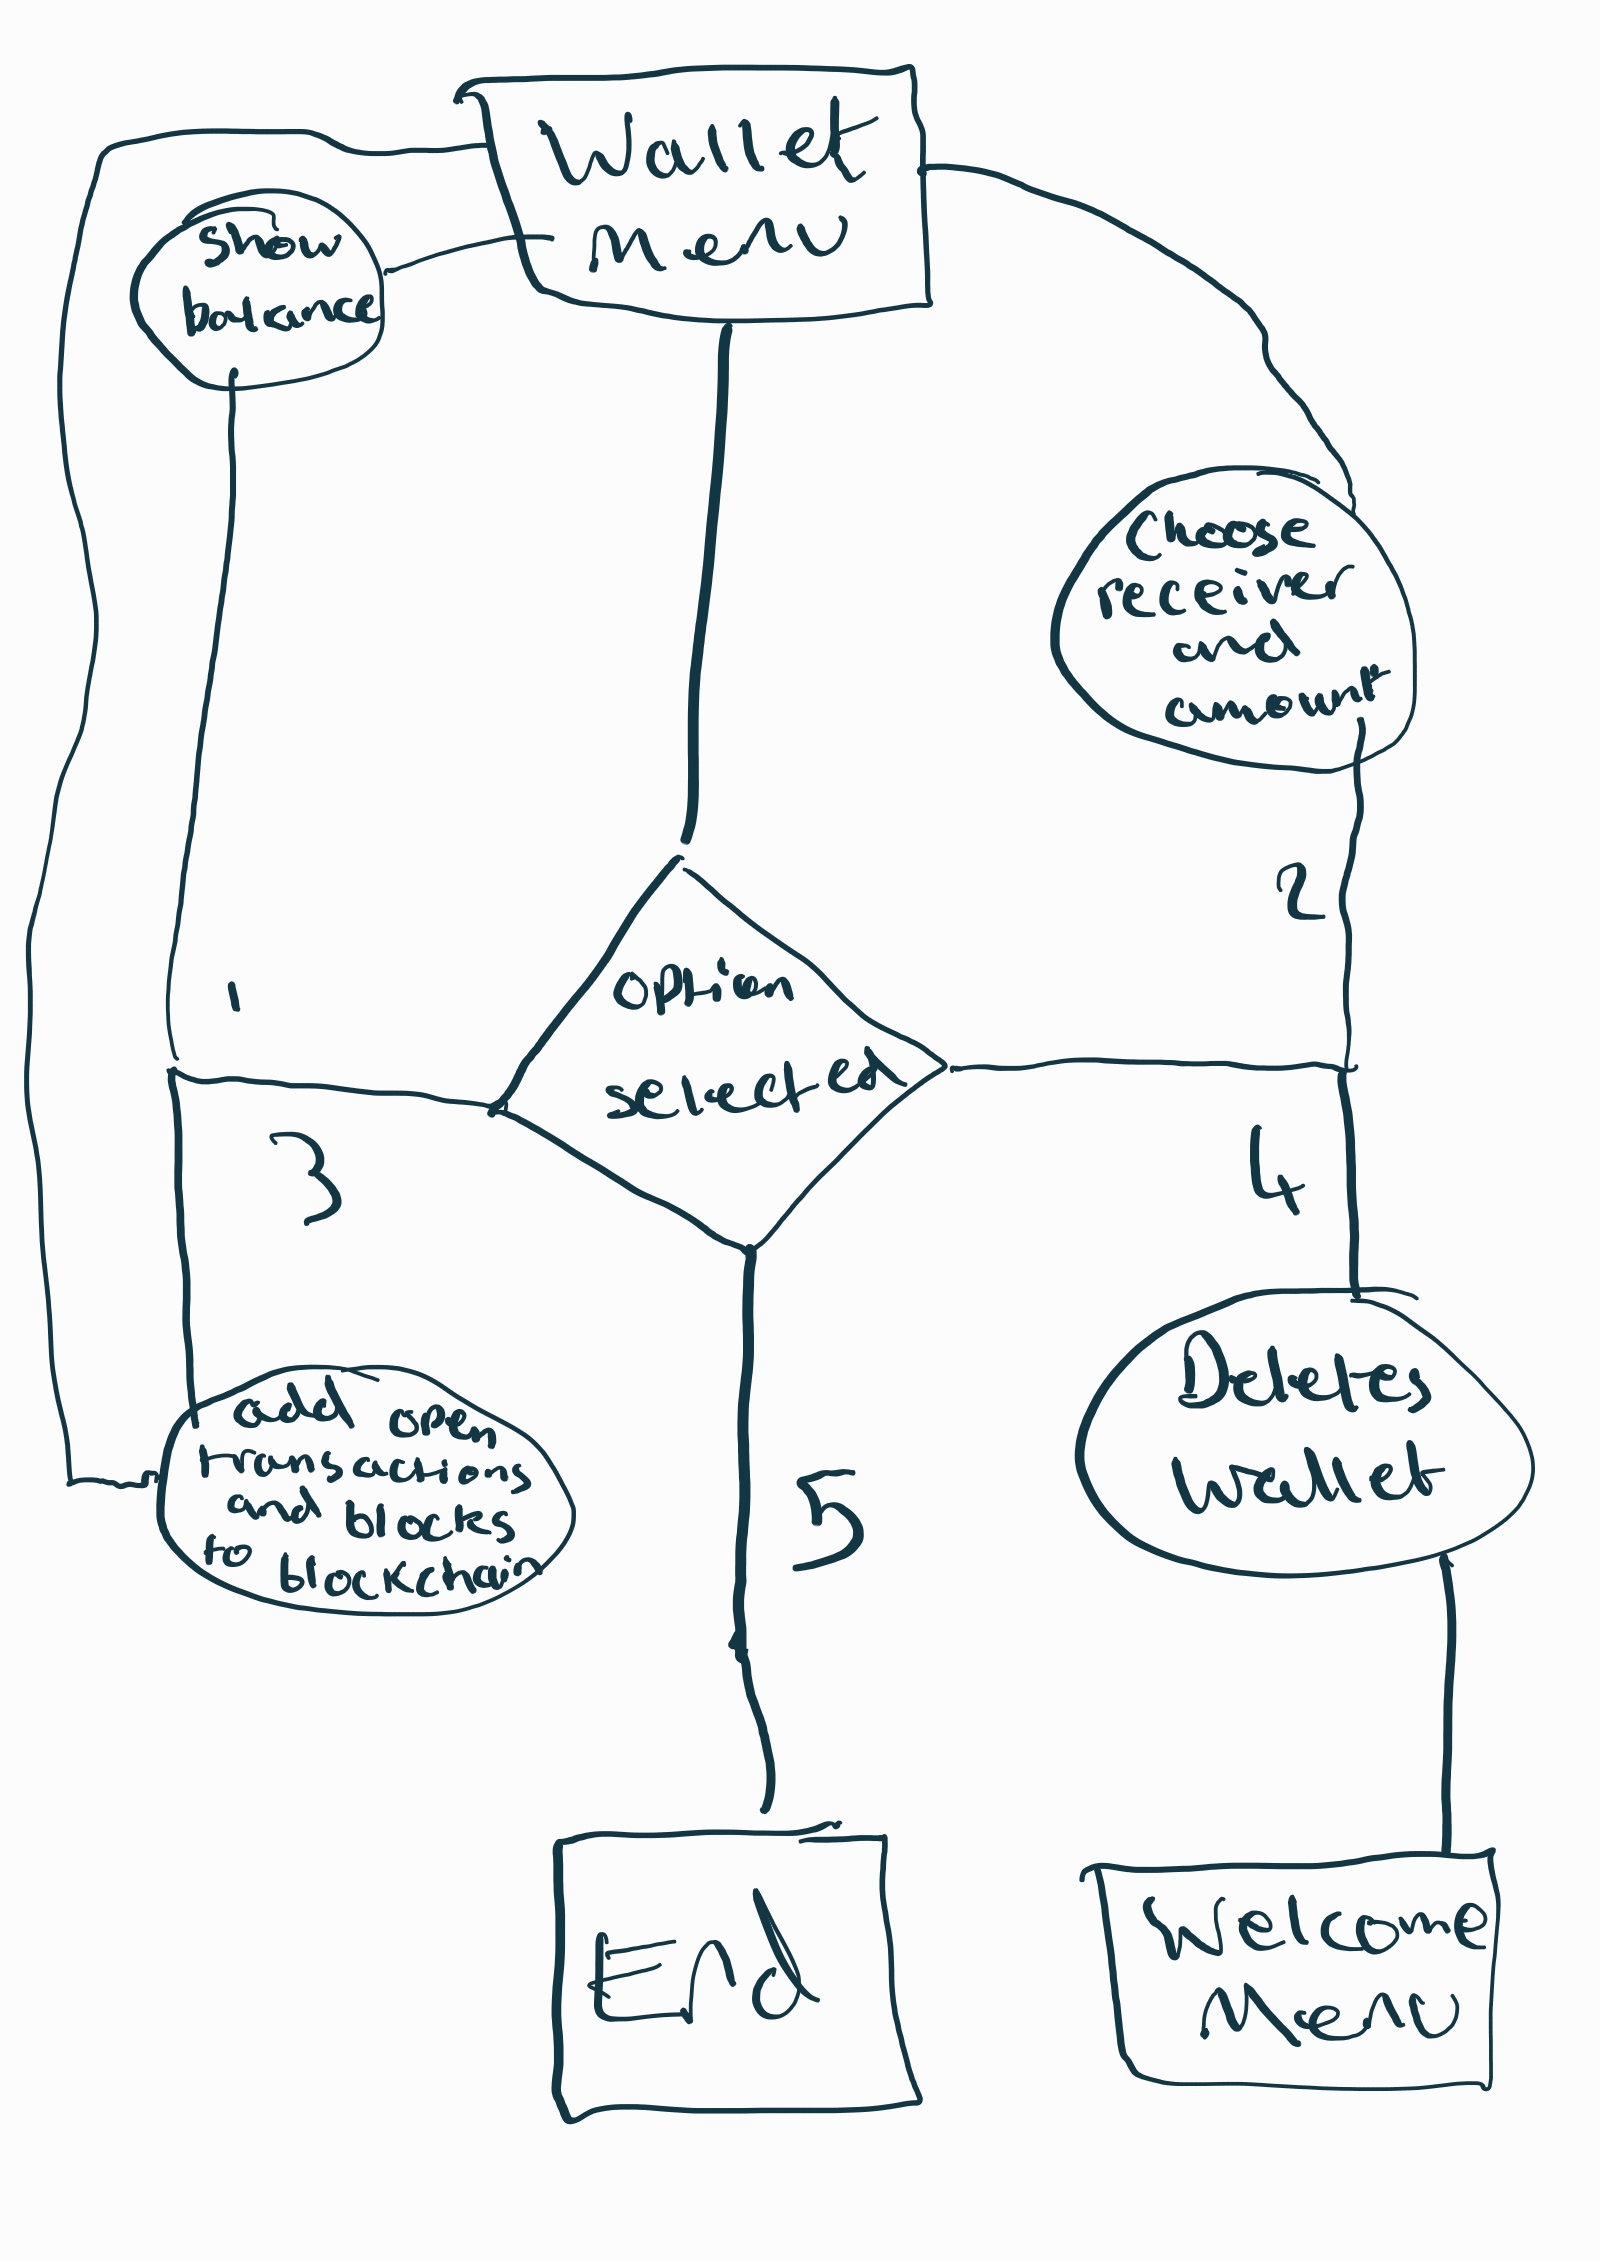 Wallet
Menu
show
balance
Choose
receiver
and
amount
2
1
option
selected
3
4
add open
transactions
and blocks
to blockchain
Deletes
wallet
5
End
Welcome
Menu